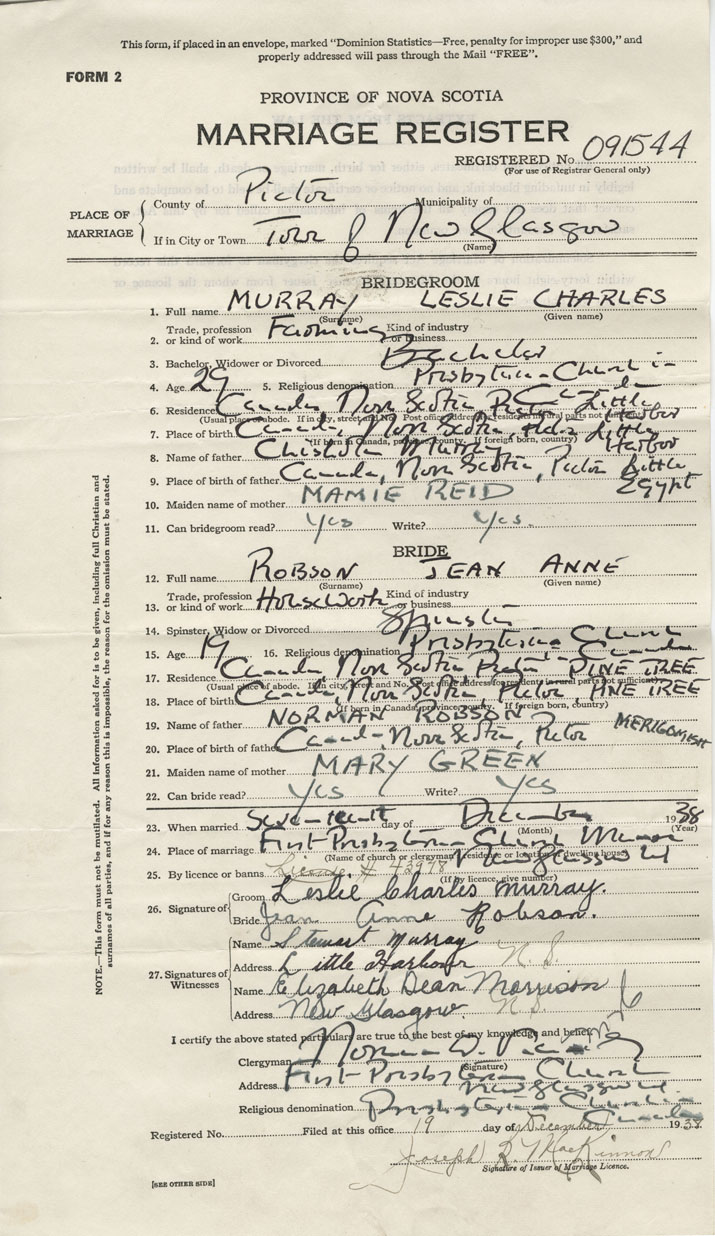 This form, if placed in an envelope, marked "Dominion Statistics—Free, penalty for improper use $300," and
properly addressed will pass through the Mail "FREE".
FORM 2
PROVINCE OF NOVA SCOTIA
MARRIAGE REGISTER
REGISTERED No. 091544
(For use of Registrar General only)
PLACE OF MARRIAGE
County of Pictou Municipality of
If in City or Town Town of New Glasgow
(Name)
BRIDEGROOM
1. Full name MURRAY LESLIE CHARLES
(Surname) (Given name)
2. Trade, profession or kind of work Farming Kind of industry or business
3. Bachelor, Widower or Divorced Bachelor
4. Age 29 5. Religious denomination Presbyterian Church in Canada
6. Residence Canada, Nova Scotia, Pictou Little Harbor
(Usual place of abode. If in city, street and No. Post office address if residence in rural parts not sufficient)
7. Place of birth Canada, Nova Scotia, Pictou Little Harbor
(If born in Canada, province, county. If foreign born, country)
8. Name of father Chisholm Murray
9. Place of birth of father Canada, Nova Scotia, Pictou Little Egypt
10. Maiden name of mother MAMIE REID
11. Can bridegroom read? Yes Write? Yes.
BRIDE
12. Full name ROBSON JEAN ANNE
(Surname) (Given name)
13. Trade, profession or kind of work Housework Kind of industry or business
14. Spinster, Widow or Divorced Spinster
15. Age 19 16. Religious denomination Presbyterian Church in Canada
17. Residence Canada Nova Scotia Pictou PINE TREE
(Usual place of abode. If in city, street and No. Post office address if residence in rural parts not sufficient)
18. Place of birth Canada, Nova Scotia, Pictou, PINE TREE
(If born in Canada, province, county. If foreign born, country)
19. Name of father NORMAN ROBSON
20. Place of birth of father Canada, Nova Scotia, Pictou MERIGOMISH
21. Maiden name of mother MARY GREEN
22. Can bride read? Yes Write? Yes
23. When married Seventeenth day of December 1938
(Month) (Year)
24. Place of marriage First Presbyterian Church Manse New Glasgow N.S.
(Name of church or clergyman's residence or location of dwelling house)
25. By licence or banns License # 43978
(If by licence, give number)
26. Signature of
Groom Leslie Charles Murray.
Bride Jean Anne Robson.
27. Signatures of Witnesses
Name Stewart Murray
Address Little Harbour N.S.
Name Elizabeth Dean Morrison
Address New Glasgow. N.S.
I certify the above stated particulars are true to the best of my knowledge and belief.
Clergyman Norman D.
(Signature)
Address First Presbyterian Church
New Glasgow N.S.
Religious denomination Presbyterian Church in Canada
Registered No. Filed at this office 19 day of December 1938
Joseph R. MacKinnon
Signature of Issuer of Marriage Licence.
[SEE OTHER SIDE]
NOTE.—This form must not be mutilated. All information asked for is to be given, including full Christian and
surnames of all parties, and if for any reason this is impossible, the reason for the omission must be stated.